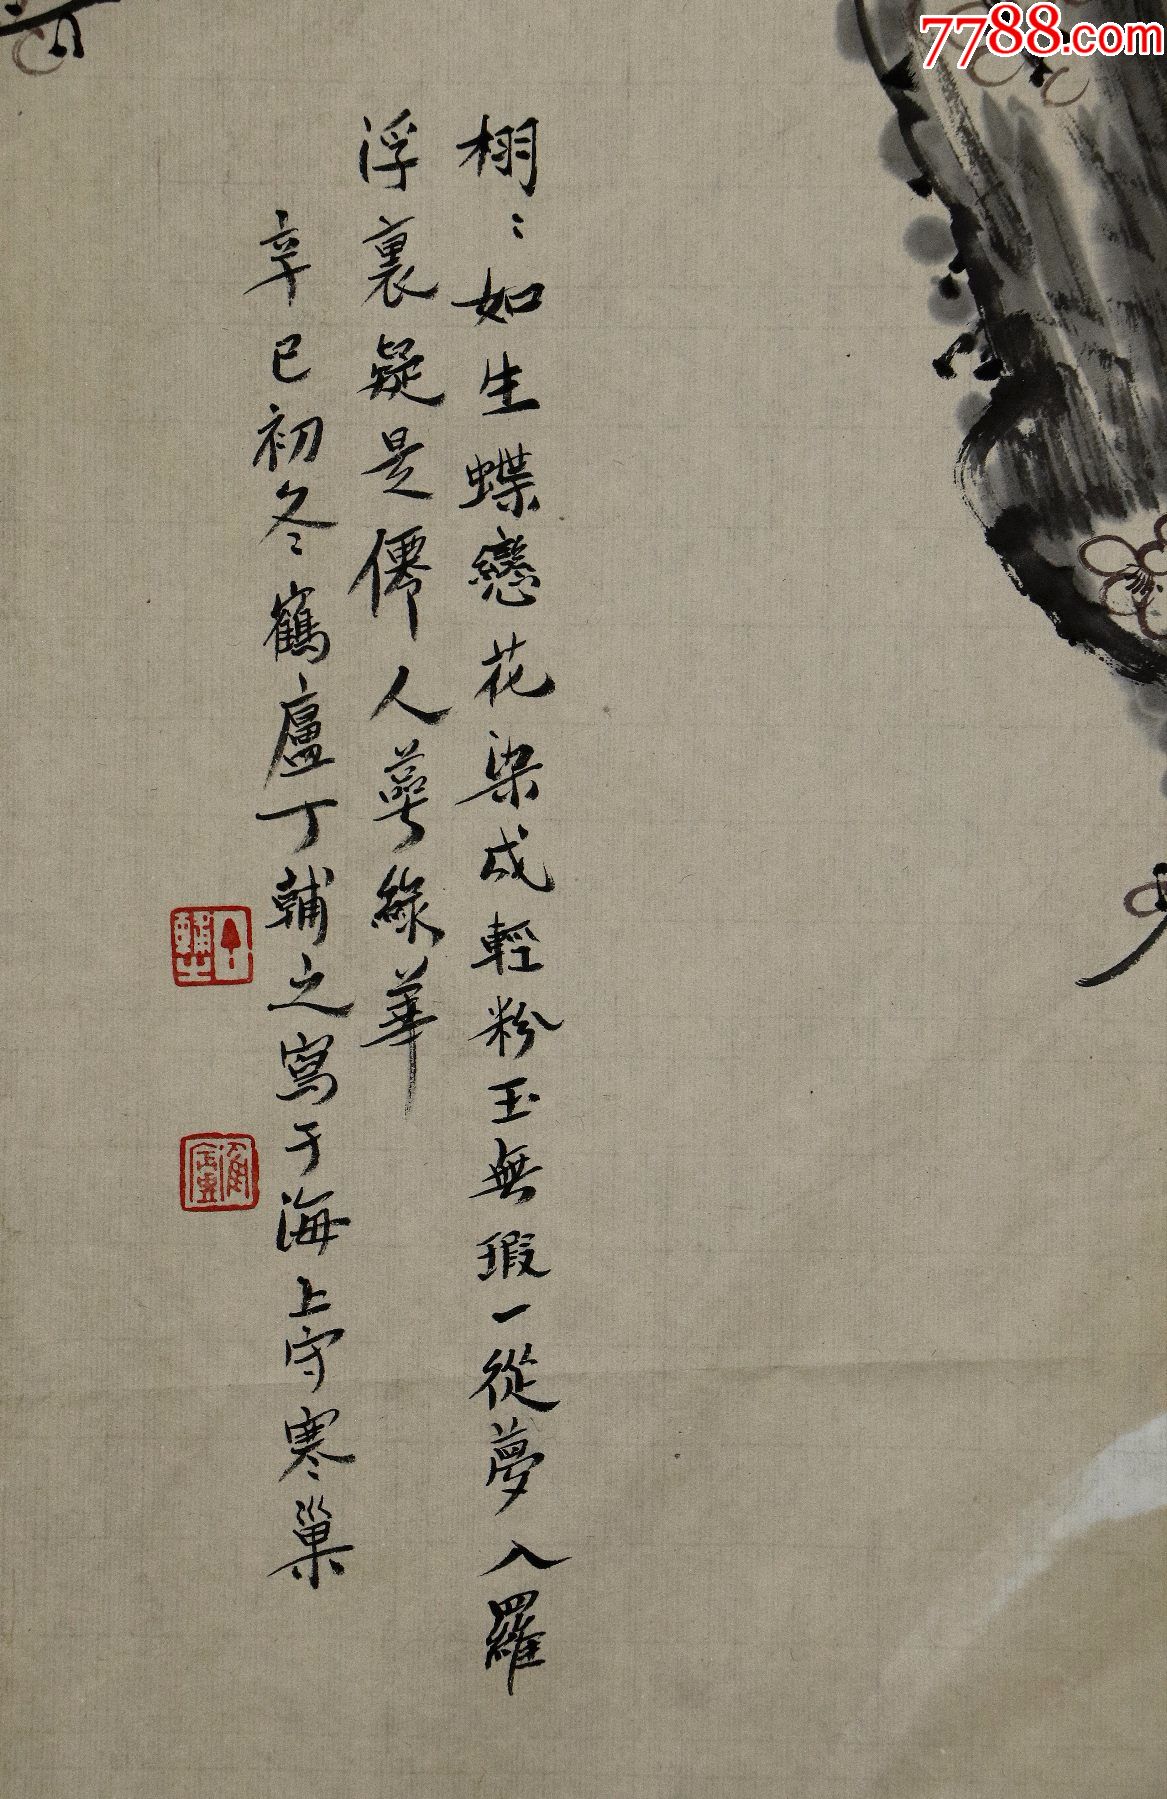 栩〻如生蝶戀花染成輕粉玉無瑕一從夢入羅
浮裏疑是僊人萼綠華
辛巳初冬鶴廬丁輔之寫于海上守寒巢
丁輔之
鶴廬
7788.com